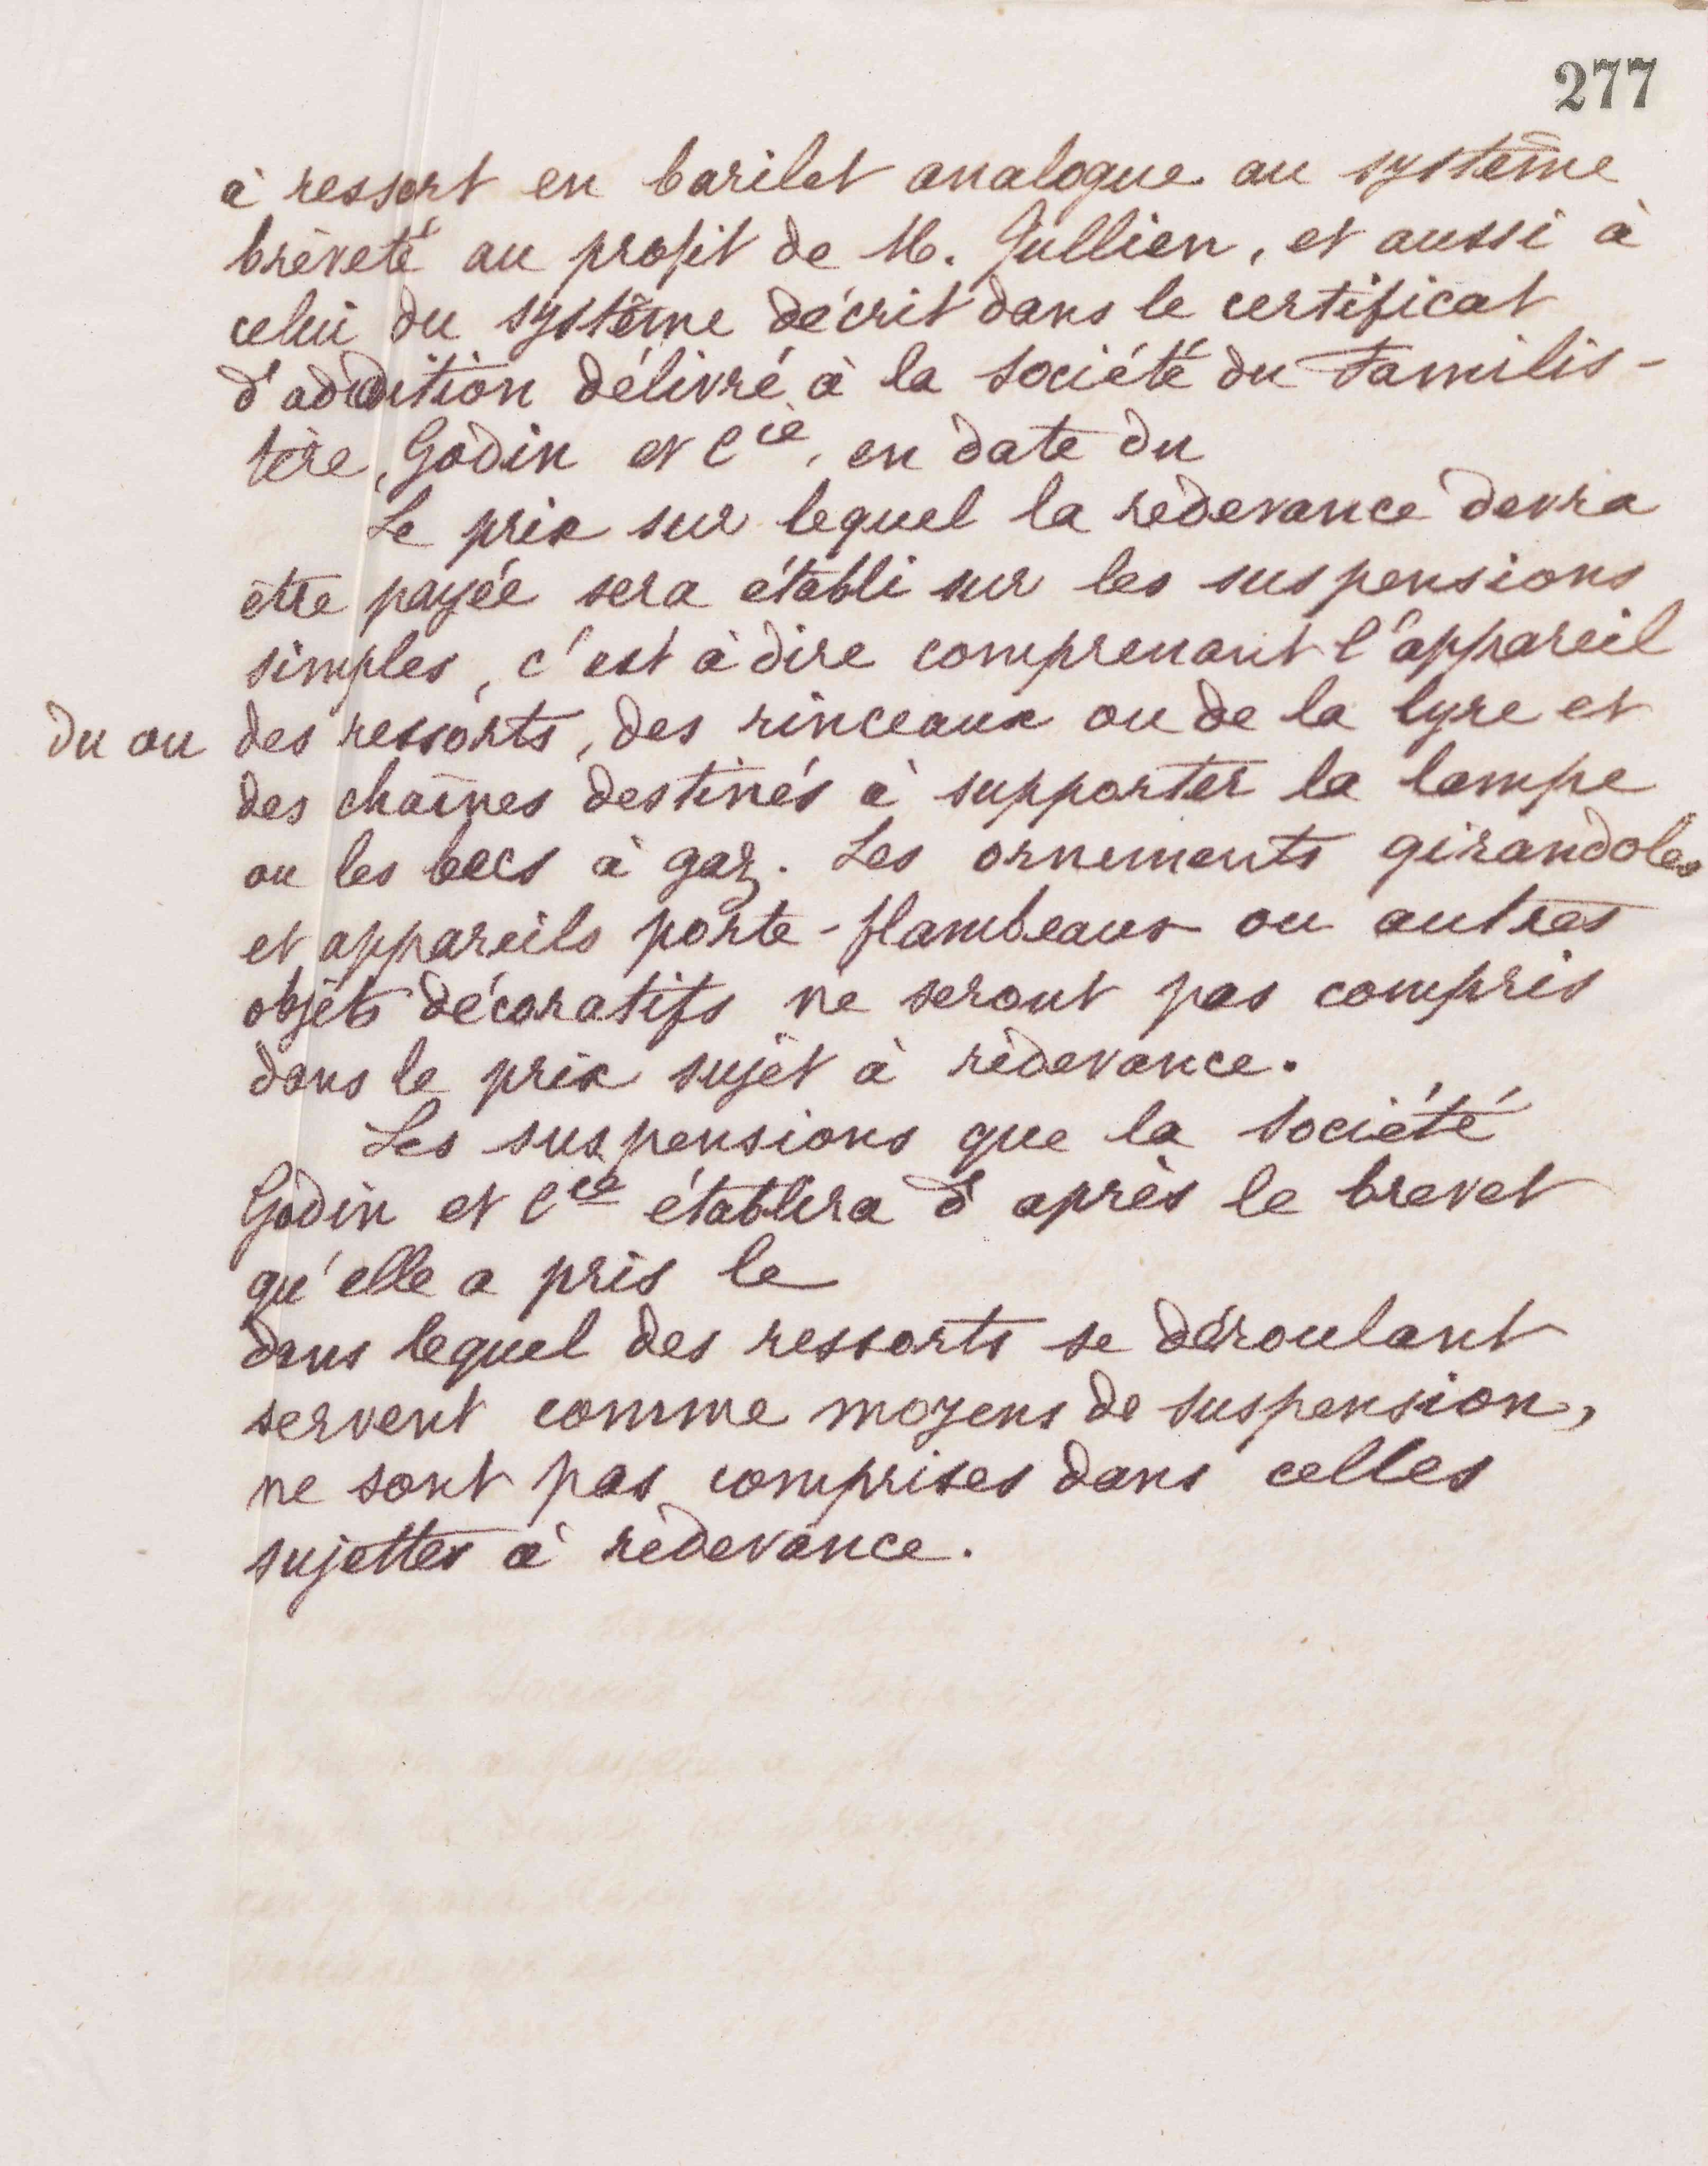 277
à ressort en barilet analogue au système
bréveté au profit de M. Jullien, et aussi à
celui du système décrit dans le certificat
d'addition délivré à la Société du Familis-
tère, Godin et Cie, en date du
Le prix sur lequel la redevance devra
être payée sera établi sur les suspensions
simples, c'est à dire comprenant l'appareil
du ou des ressorts, des rinceaux ou de la lyre et
des chaînes destinés à supporter la lampe
ou les becs à gaz. Les ornements girandoles
et appareils porte-flambeaux ou autres
objets décoratifs ne seront pas compris
dans le prix sujet à redevance.
Les suspensions que la Société
Godin et Cie établira d'après le brevet
qu'elle a pris le
dans lequel des ressorts se déroulant
servent comme moyens de suspension,
ne sont pas comprises dans celles
sujettes à redevance.